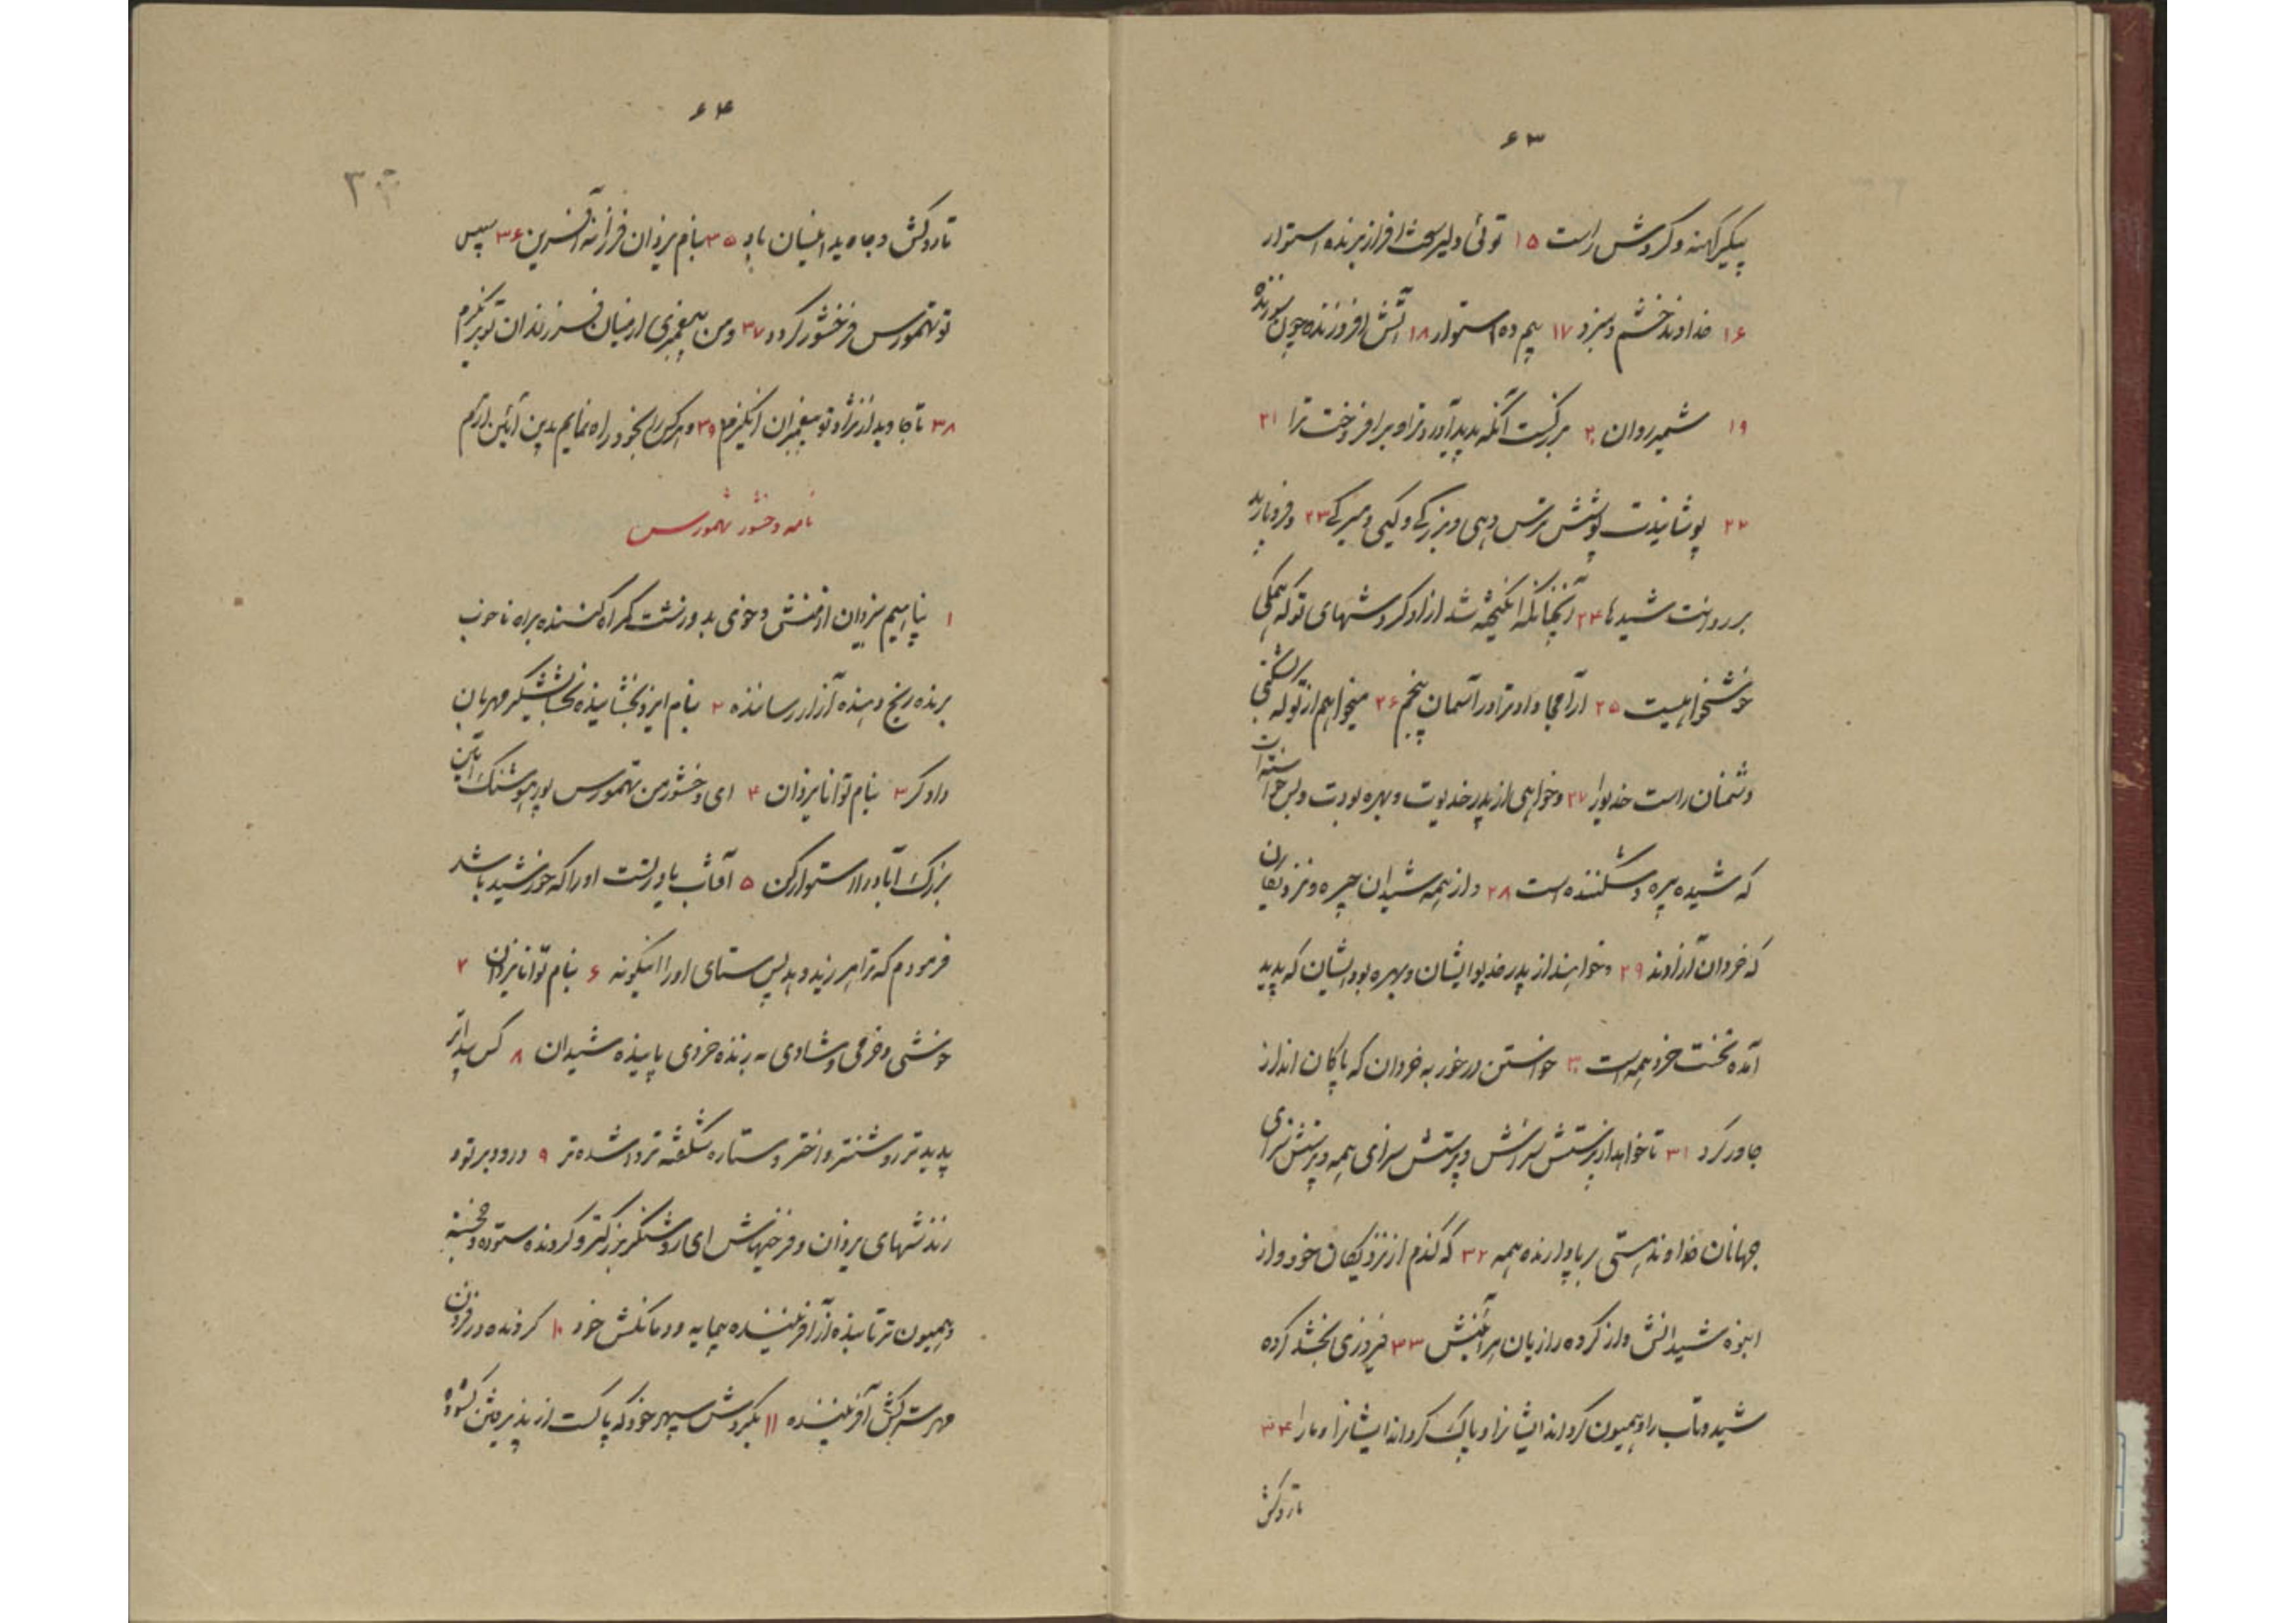 ۶۳
پیکر کهنه و کروش راست ۱۵ توئی دلیر سخت افراز برنده استوار
۱۶ خداوند خشم و نبرد ۱۷ بیم ده استوار ۱۸ آتش افروزنده چون سوزنده
۱۹ شمیدروان ۲۰ بزرگست آنکه پدید آورد ترا و برافروخت ترا ۲۱
۲۲ پوشانیدت پوشش ترس دهی و بزرگی و کیی و میرکی ۲۳ و فروبارید
بر روانت شیدها ۲۴ آنچنانکه انگیخته شد ازاد کروشهای تو که همکی
خوشخواهیست ۲۵ ارامجا داد ترا در آسمان پنجم ۲۶ میخواهم از تو که بشکنی
دشمنان راست خدیورا ۲۷ و خواهی از پدر خدیوت و بهره بودت و بس خواسته ات
که شیده پیره و شکننده است ۲۸ و از همه شیدان چیره و نزدیکان
که خردان آزادند ۲۹ و خواهند از پدر خدیوایشان و بهره بودایشان که پدید
آمده نخست خرد همه است ۳۰ خواستن درخور به خردان که پاکان انداز
جاور کرد ۳۱ تا خواهد از پرستش سزایش و پرستش سزای همه و پرستش سزای
جهانان خداوند هستی برپادارنده همه ۳۲ که کندم از نزدیکان خود و از
انبوه شیدانش و از کروه رازیان هرآئینش ۳۳ فیروزی بخشد کروه
شید و تاب را و همیون کرداند ایشانرا و پاک کرداند ایشانرا و مارا ۳۴
تاروکش
۶۴
تاروکش و جاوید اینسان باد ۳۵ بنام یزدان فرزانه آفرین ۳۶ سپس
تو تهمورس فرخشور کردد ۳۷ و من پیغمبری از میان فرزندان تو برنگیرم
۳۸ تا جاوید از نژاد تو پیغمبران انگیزم ۳۹ و هرکس را بخود راه نمایم بدین آئین ارم
نامه وخشور تهمورس
۱ پناهیم بیزدان از منش و خوی بد و زشت گمراه کننده براه ناخوب
برنده رنج دهنده آزار رساننده ۲ بنام ایزد بخشاینده بخشایشگر مهربان
دادگر ۳ بنام توانا یزدان ۴ ای وخشور من تهمورس پور هوشنک آئین
بزرک آباد را استوار کن ۵ آفتاب یاور تست او را که خورشید باشد
فرمودم که ترا هرزید و هد پس ستای او را اینگونه ۶ بنام توانا یزدان ۷
خوشی و خرمی و شادی به برنده خردی پاینده شیدان ۸ کس پیداتر
پدیدتر روشنتر و اختر و ستاره شکفته تر و رشده تر ۹ درود بر تو و
زندشهای یزدان و فرخیهاش ای روشنگر بزرگتر و کردنده ستوده و خجسته
و همیون تر تابنده از آفریننده بیمایه و مانکش خود ۱۰ کردنده در فزون
مهر سترکش آفریننده ۱۱ بکروش سپهر خود که پاکست از پذیرفتن کشودن